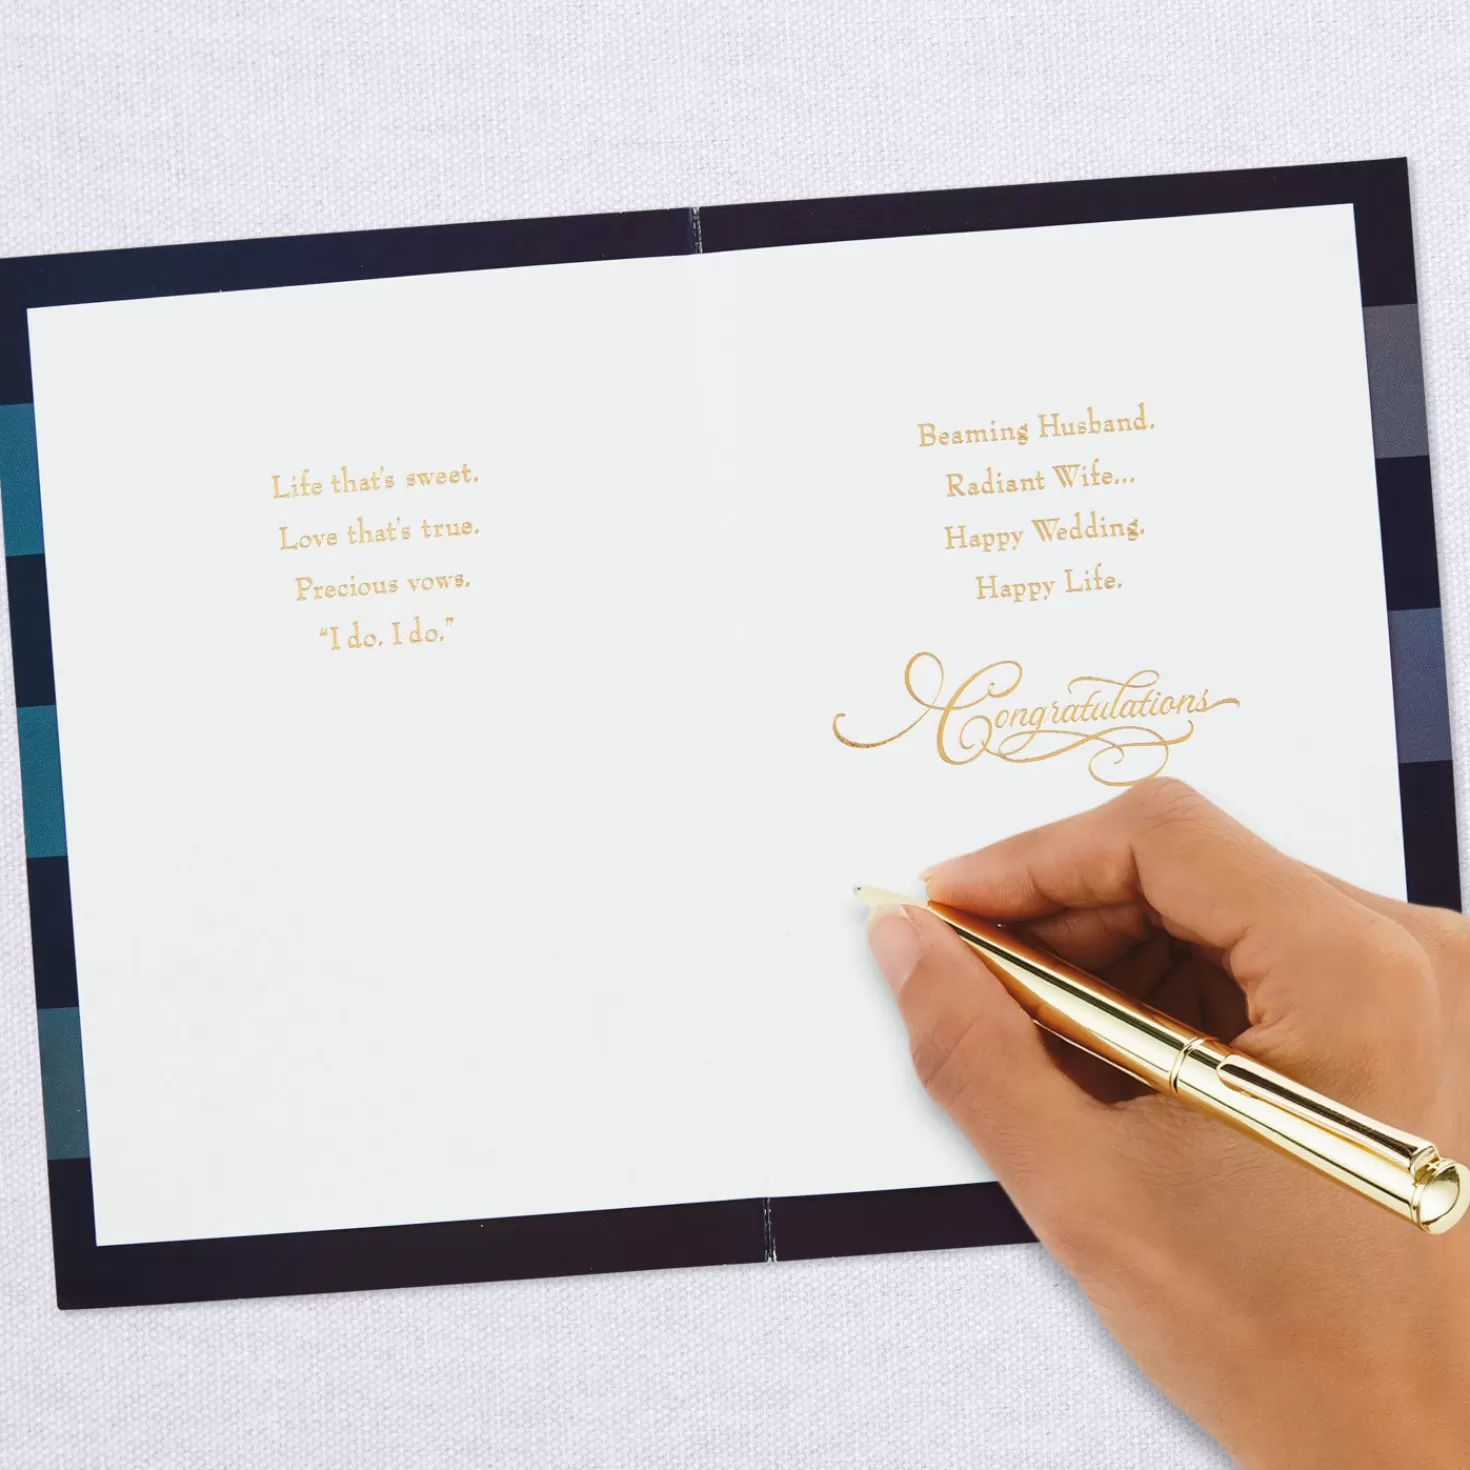 Life that's sweet.
Love that's true.
Precious vows.
“I do, I do.”
Beaming Husband.
Radiant Wife...
Happy Wedding.
Happy Life.
Congratulations